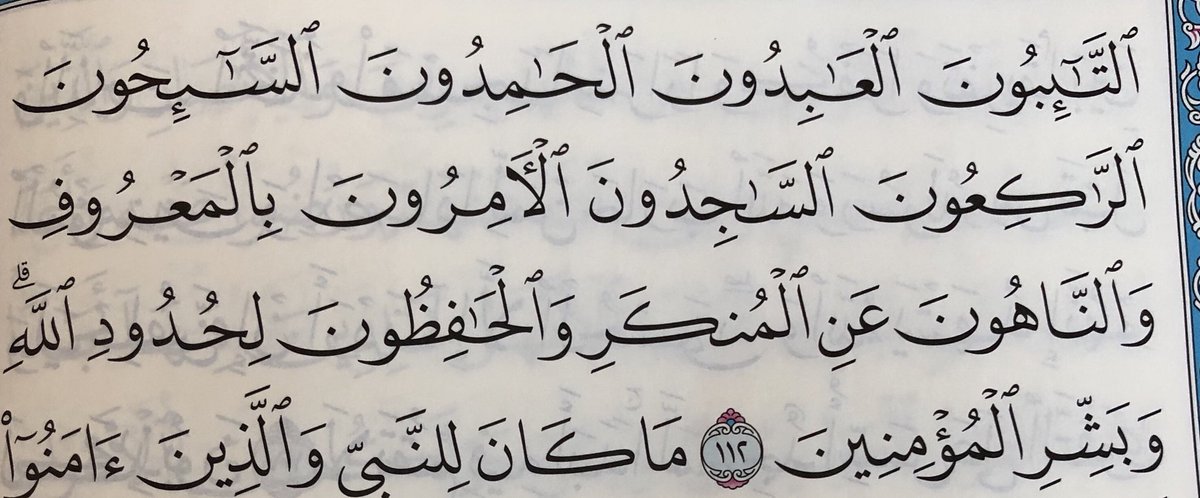 ٱلتَّٰٓئِبُونَ ٱلْعَٰبِدُونَ ٱلْحَٰمِدُونَ ٱلسَّٰٓئِحُونَ
ٱلرَّٰكِعُونَ ٱلسَّٰجِدُونَ ٱلْأٓمِرُونَ بِٱلْمَعْرُوفِ
وَٱلنَّاهُونَ عَنِ ٱلْمُنكَرِ وَٱلْحَٰفِظُونَ لِحُدُودِ ٱللَّهِۗ
وَبَشِّرِ ٱلْمُؤْمِنِينَ ١١٢ مَا كَانَ لِلنَّبِىِّ وَٱلَّذِينَ ءَامَنُوٓا۟